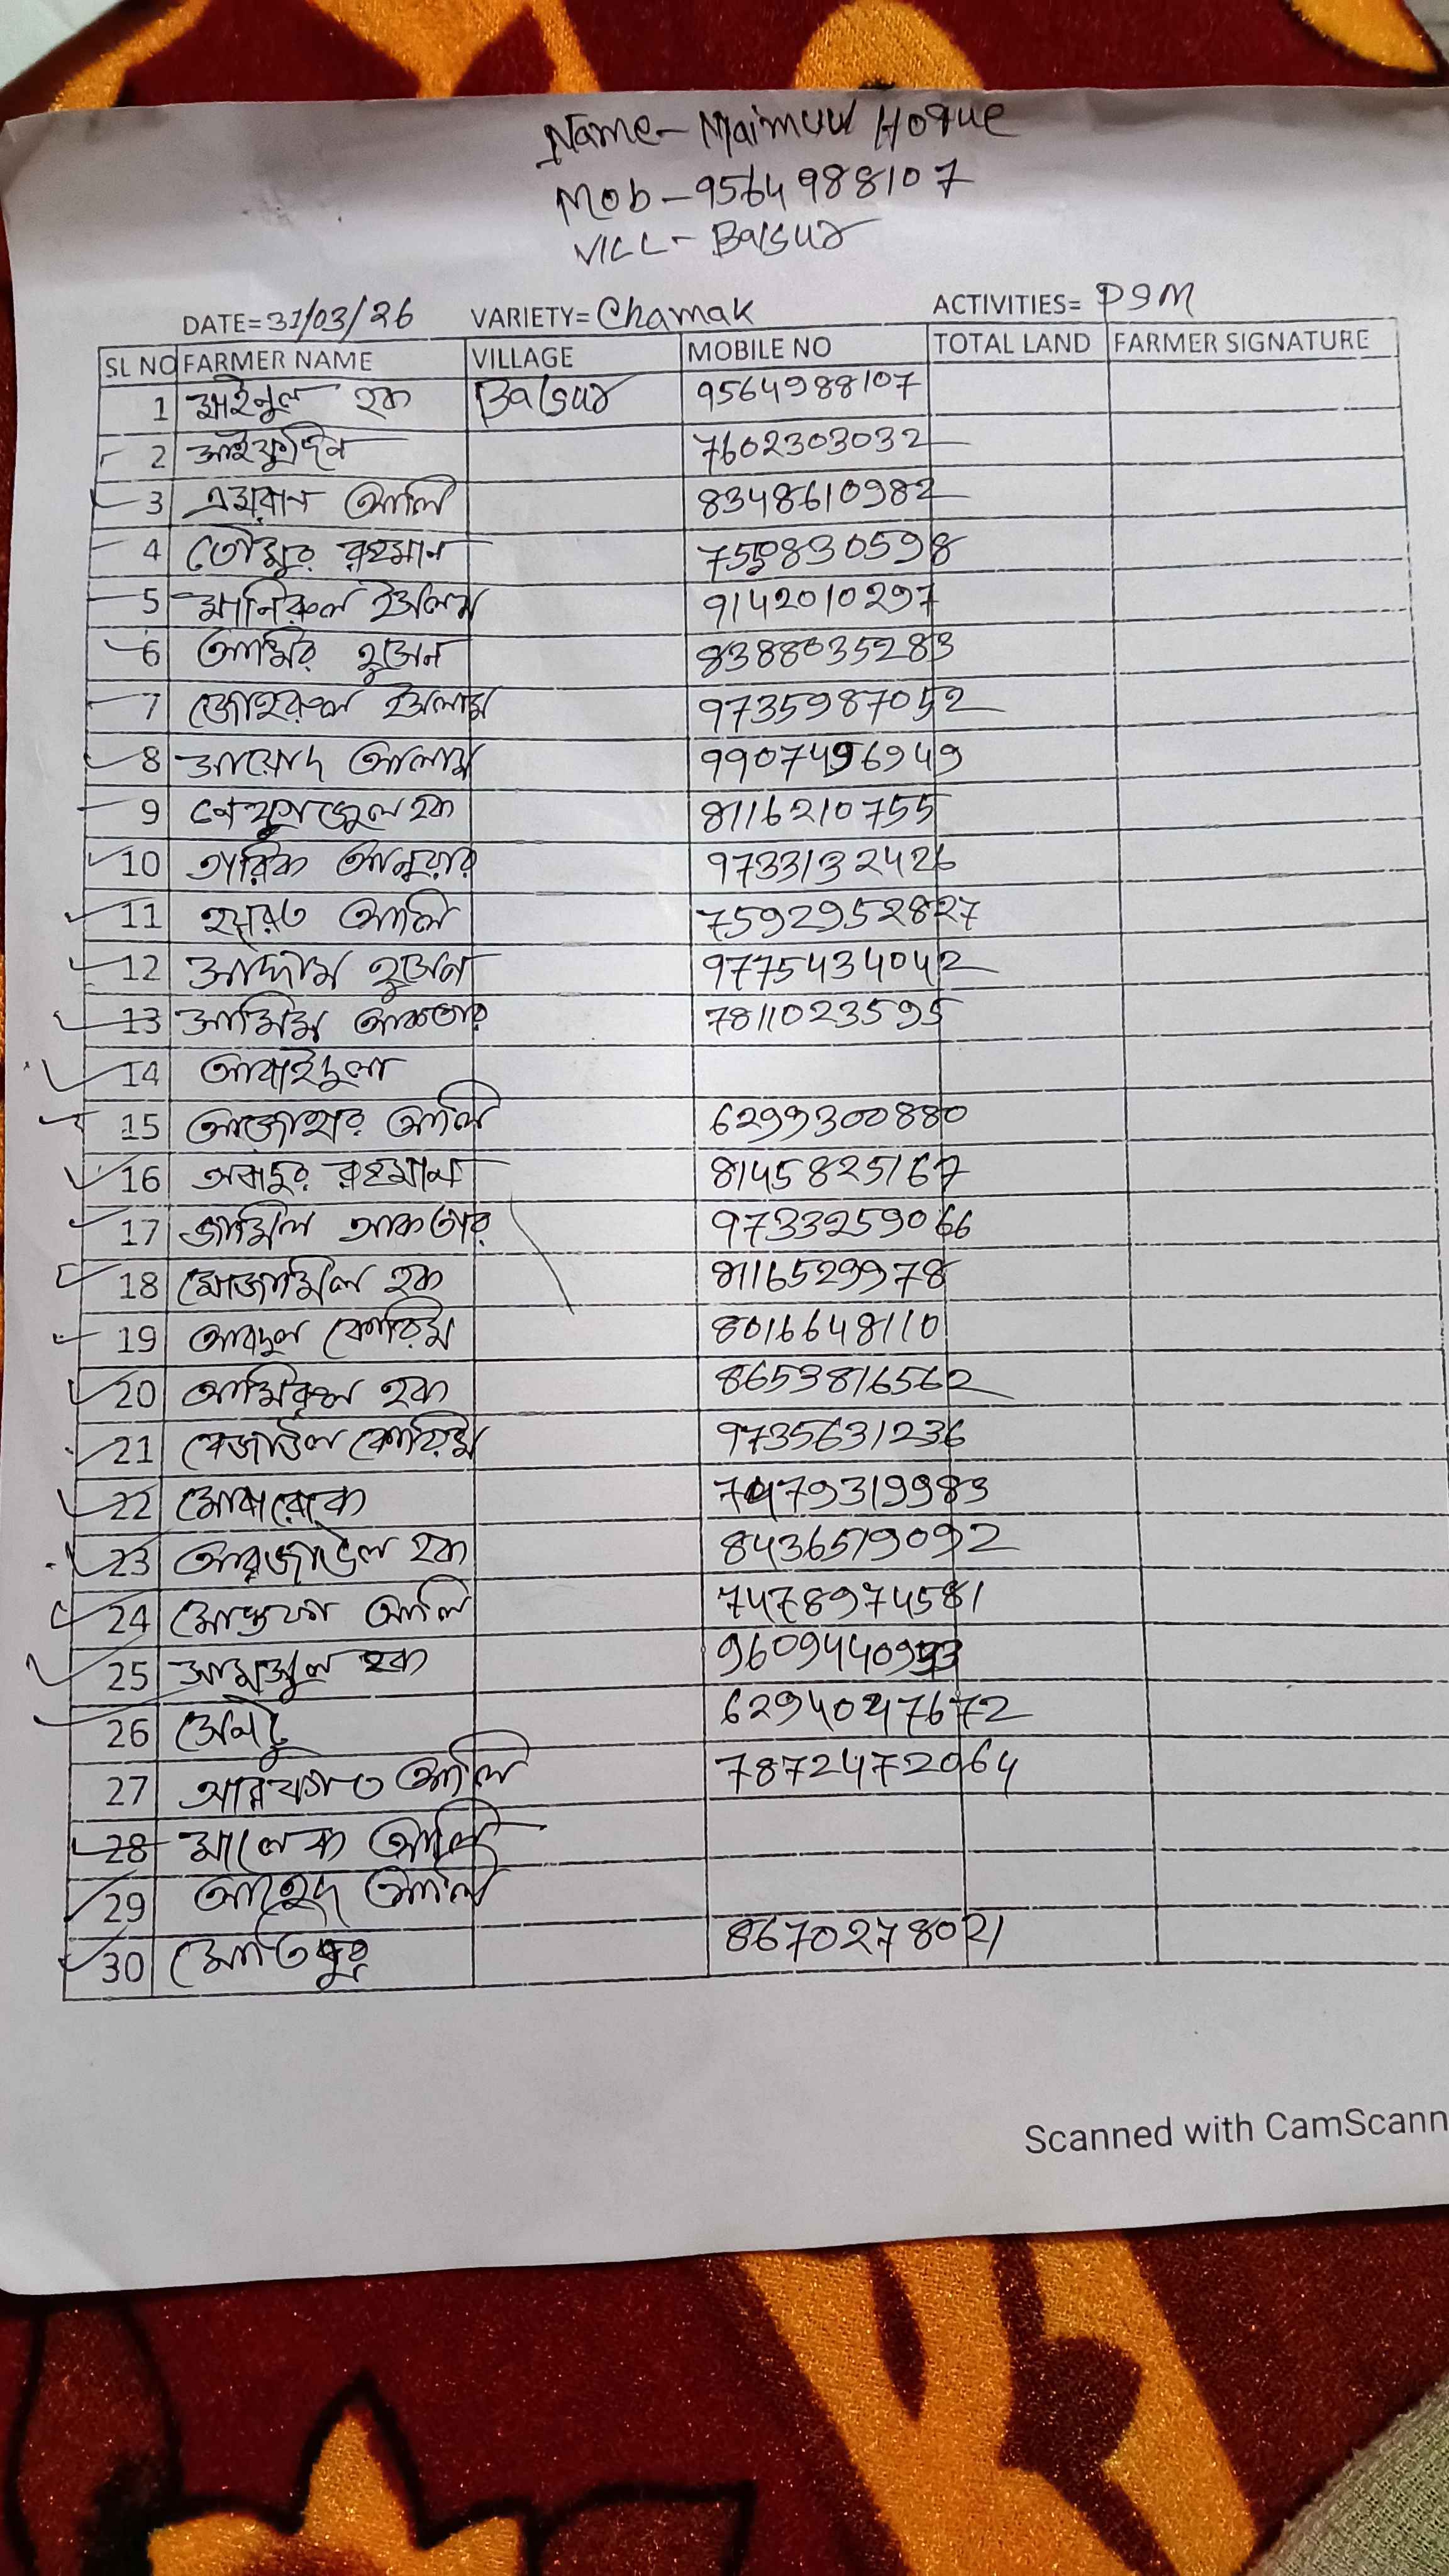 Name- Mainuul Hoque
Mob-9564988107
VILL- Balsur
DATE=31/03/26 VARIETY= Chamak ACTIVITIES= PSM
SL NO FARMER NAME VILLAGE MOBILE NO TOTAL LAND FARMER SIGNATURE
1 মাইনুল হক Balsur 9564988107
2 সাইফুদ্দিন 7602303032
3 এমরান আলি 8348610982
4 তৌমুর রহমান
5 মানিরুল ইসলাম 9142010297
6 আমির হুসেন 8388035283
7 জোহরুল ইসলাম 9735987052
8 সায়েদ আলাম 9907496949
9 8116210755
10 তারিক আনুয়ার 9733132426
11 হযরত আলি 7592952827
12 সাদ্দাম হুসেন 9775434042
13 সামিম আকতার 7811023595
14 আবাইদুলা
15 আজাহার আলি 6299300880
16 অবাদুর রহমান 8145825167
17 জামিল আকতার 9733259066
18 মোজামিল হক 8116529978
19 আবদুল কোরিম 8016648110
20 আমিরুল হক 8653816562
21 রেজাউল কোরিম 9735631236
22 মোবারোক 7479319983
23 আরজাউল হক 8436519092
24 মোস্তফা আলি 7478974581
25 সামসুল হক
26 সেন্টু 6294047672
27 আলি 7872472064
28 মালেক আলি
29 আহেদ আলি
30 মোতিবুর 8670278021
Scanned with CamScann